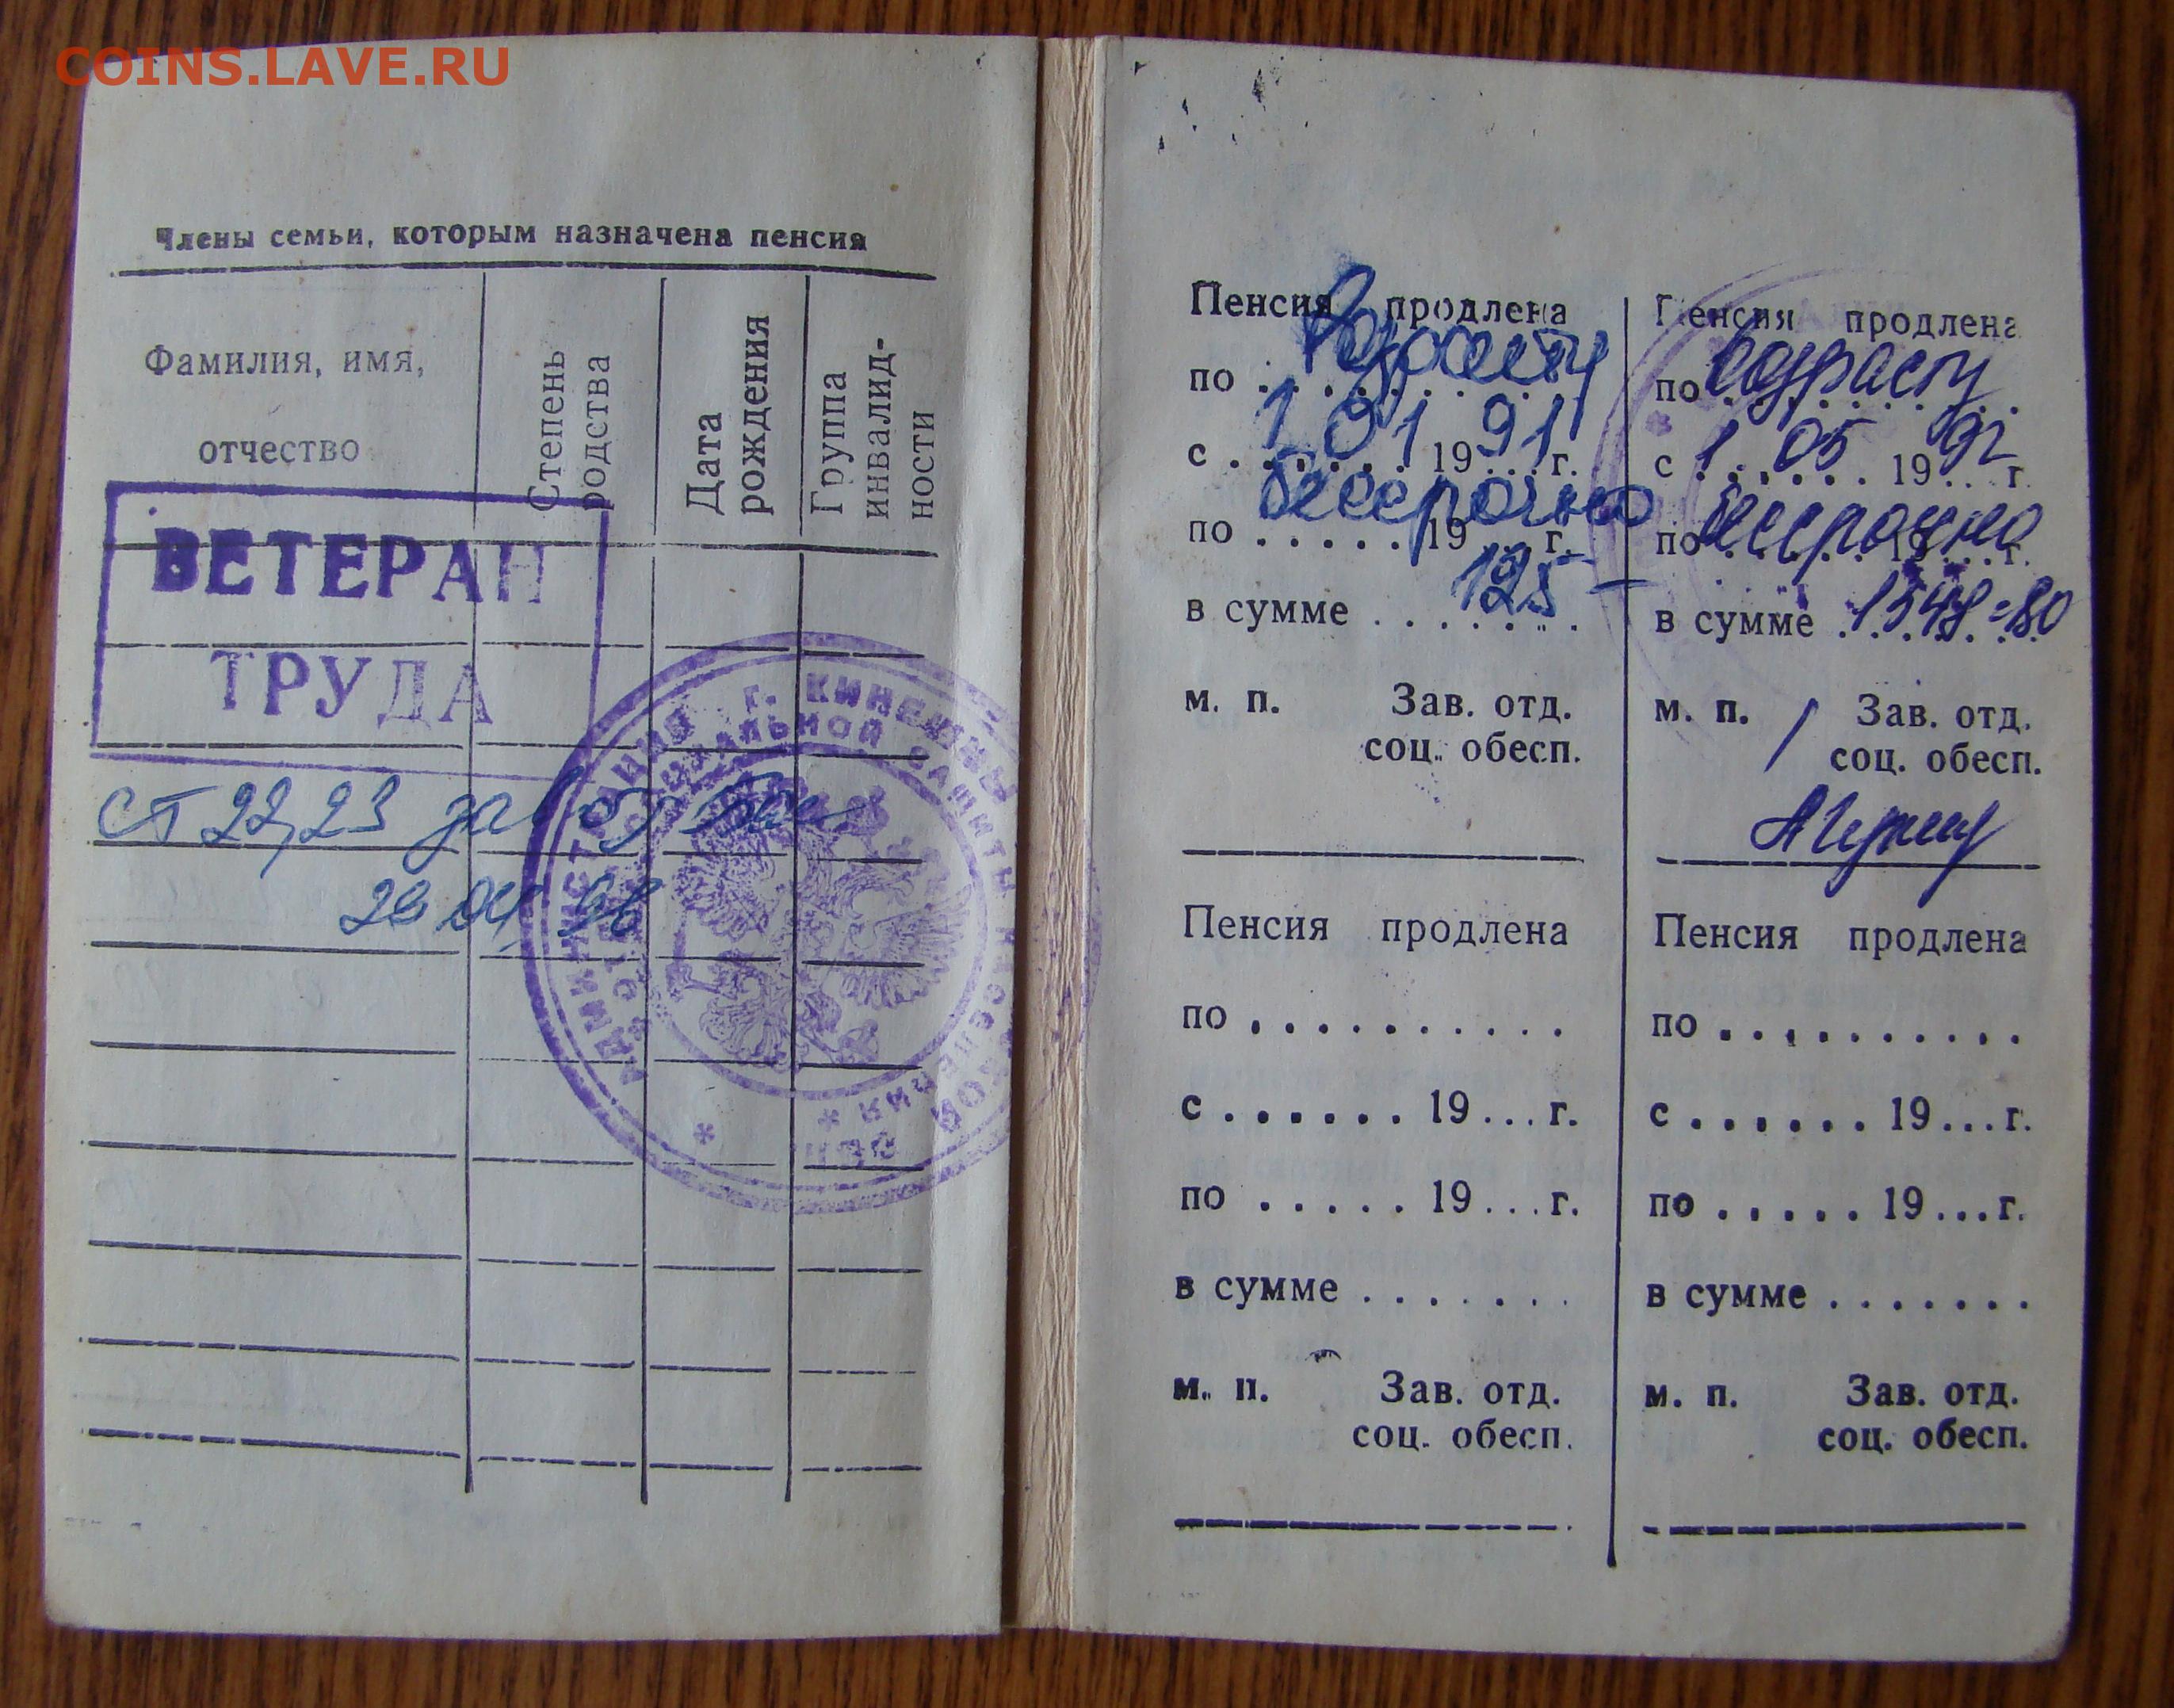 COINS.LAVE.RU
Члены семьи, которым назначена пенсия
Фамилия, имя,
отчество
Степень
родства
Дата
рождения
Группа
инвалид-
ности
ВЕТЕРАН
ТРУДА
ст 22,23
04
АДМИНИСТРАЦИЯ г. КИНЕШМЫ
СОЦИАЛЬНОЙ ЗАЩИТЫ НАСЕЛЕНИЯ
Пенсия продлена
по возрасту
с 1 01 1991 г.
по бессрочно 19...г.
в сумме 125 -
м. п. Зав. отд.
соц. обесп.
Пенсия продлена
по возрасту
с 1 05 1992 г.
по бессрочно 19...г.
в сумме 1548=80
м. п. Зав. отд.
соц. обесп.
Пенсия продлена
по ...........
с ....... 19...г.
по ..... 19...г.
в сумме .......
м. п. Зав. отд.
соц. обесп.
Пенсия продлена
по ...........
с ....... 19...г.
по ..... 19...г.
в сумме .......
м. п. Зав. отд.
соц. обесп.